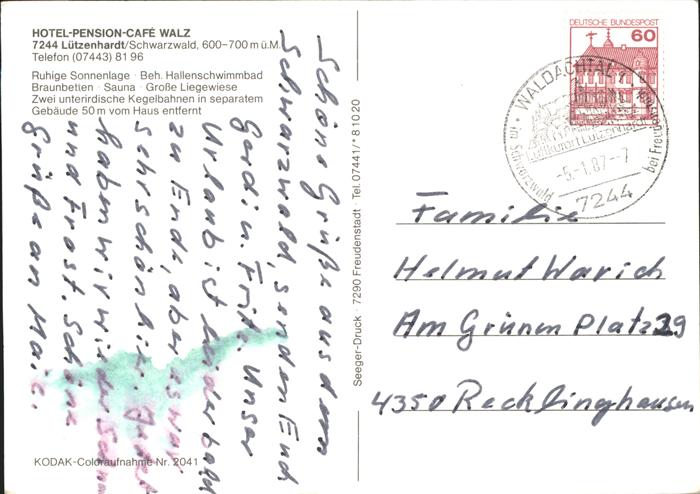 HOTEL-PENSION-CAFÉ WALZ
7244 Lützenhardt/Schwarzwald, 600–700 m ü.M.
Telefon (07443) 81 96
Ruhige Sonnenlage · Beh. Hallenschwimmbad
Braunbetten · Sauna · Große Liegewiese
Zwei unterirdische Kegelbahnen in separatem
Gebäude 50 m vom Haus entfernt
Schöne Grüße aus dem
Schwarzwald, senden Euch
Gerdi u. Fritz. Unser
Urlaub ist leider bald
zu Ende, aber es war
sehr schön hier. Jetzt
haben wir wieder Schnee
und Frost. Schöne
Grüße an
KODAK-Coloraufnahme Nr. 2041
Seeger-Druck · 7290 Freudenstadt · Tel. 07441/* 8 10 20
DEUTSCHE BUNDESPOST
60
WALDACHTAL 1
im Schwarzwald
bei Freudenstadt
Luftkurort Lützenhardt
-5.-1.87-7
7244
Familie
Helmut Warich
Am Grünen Platz 29
4350 Recklinghausen